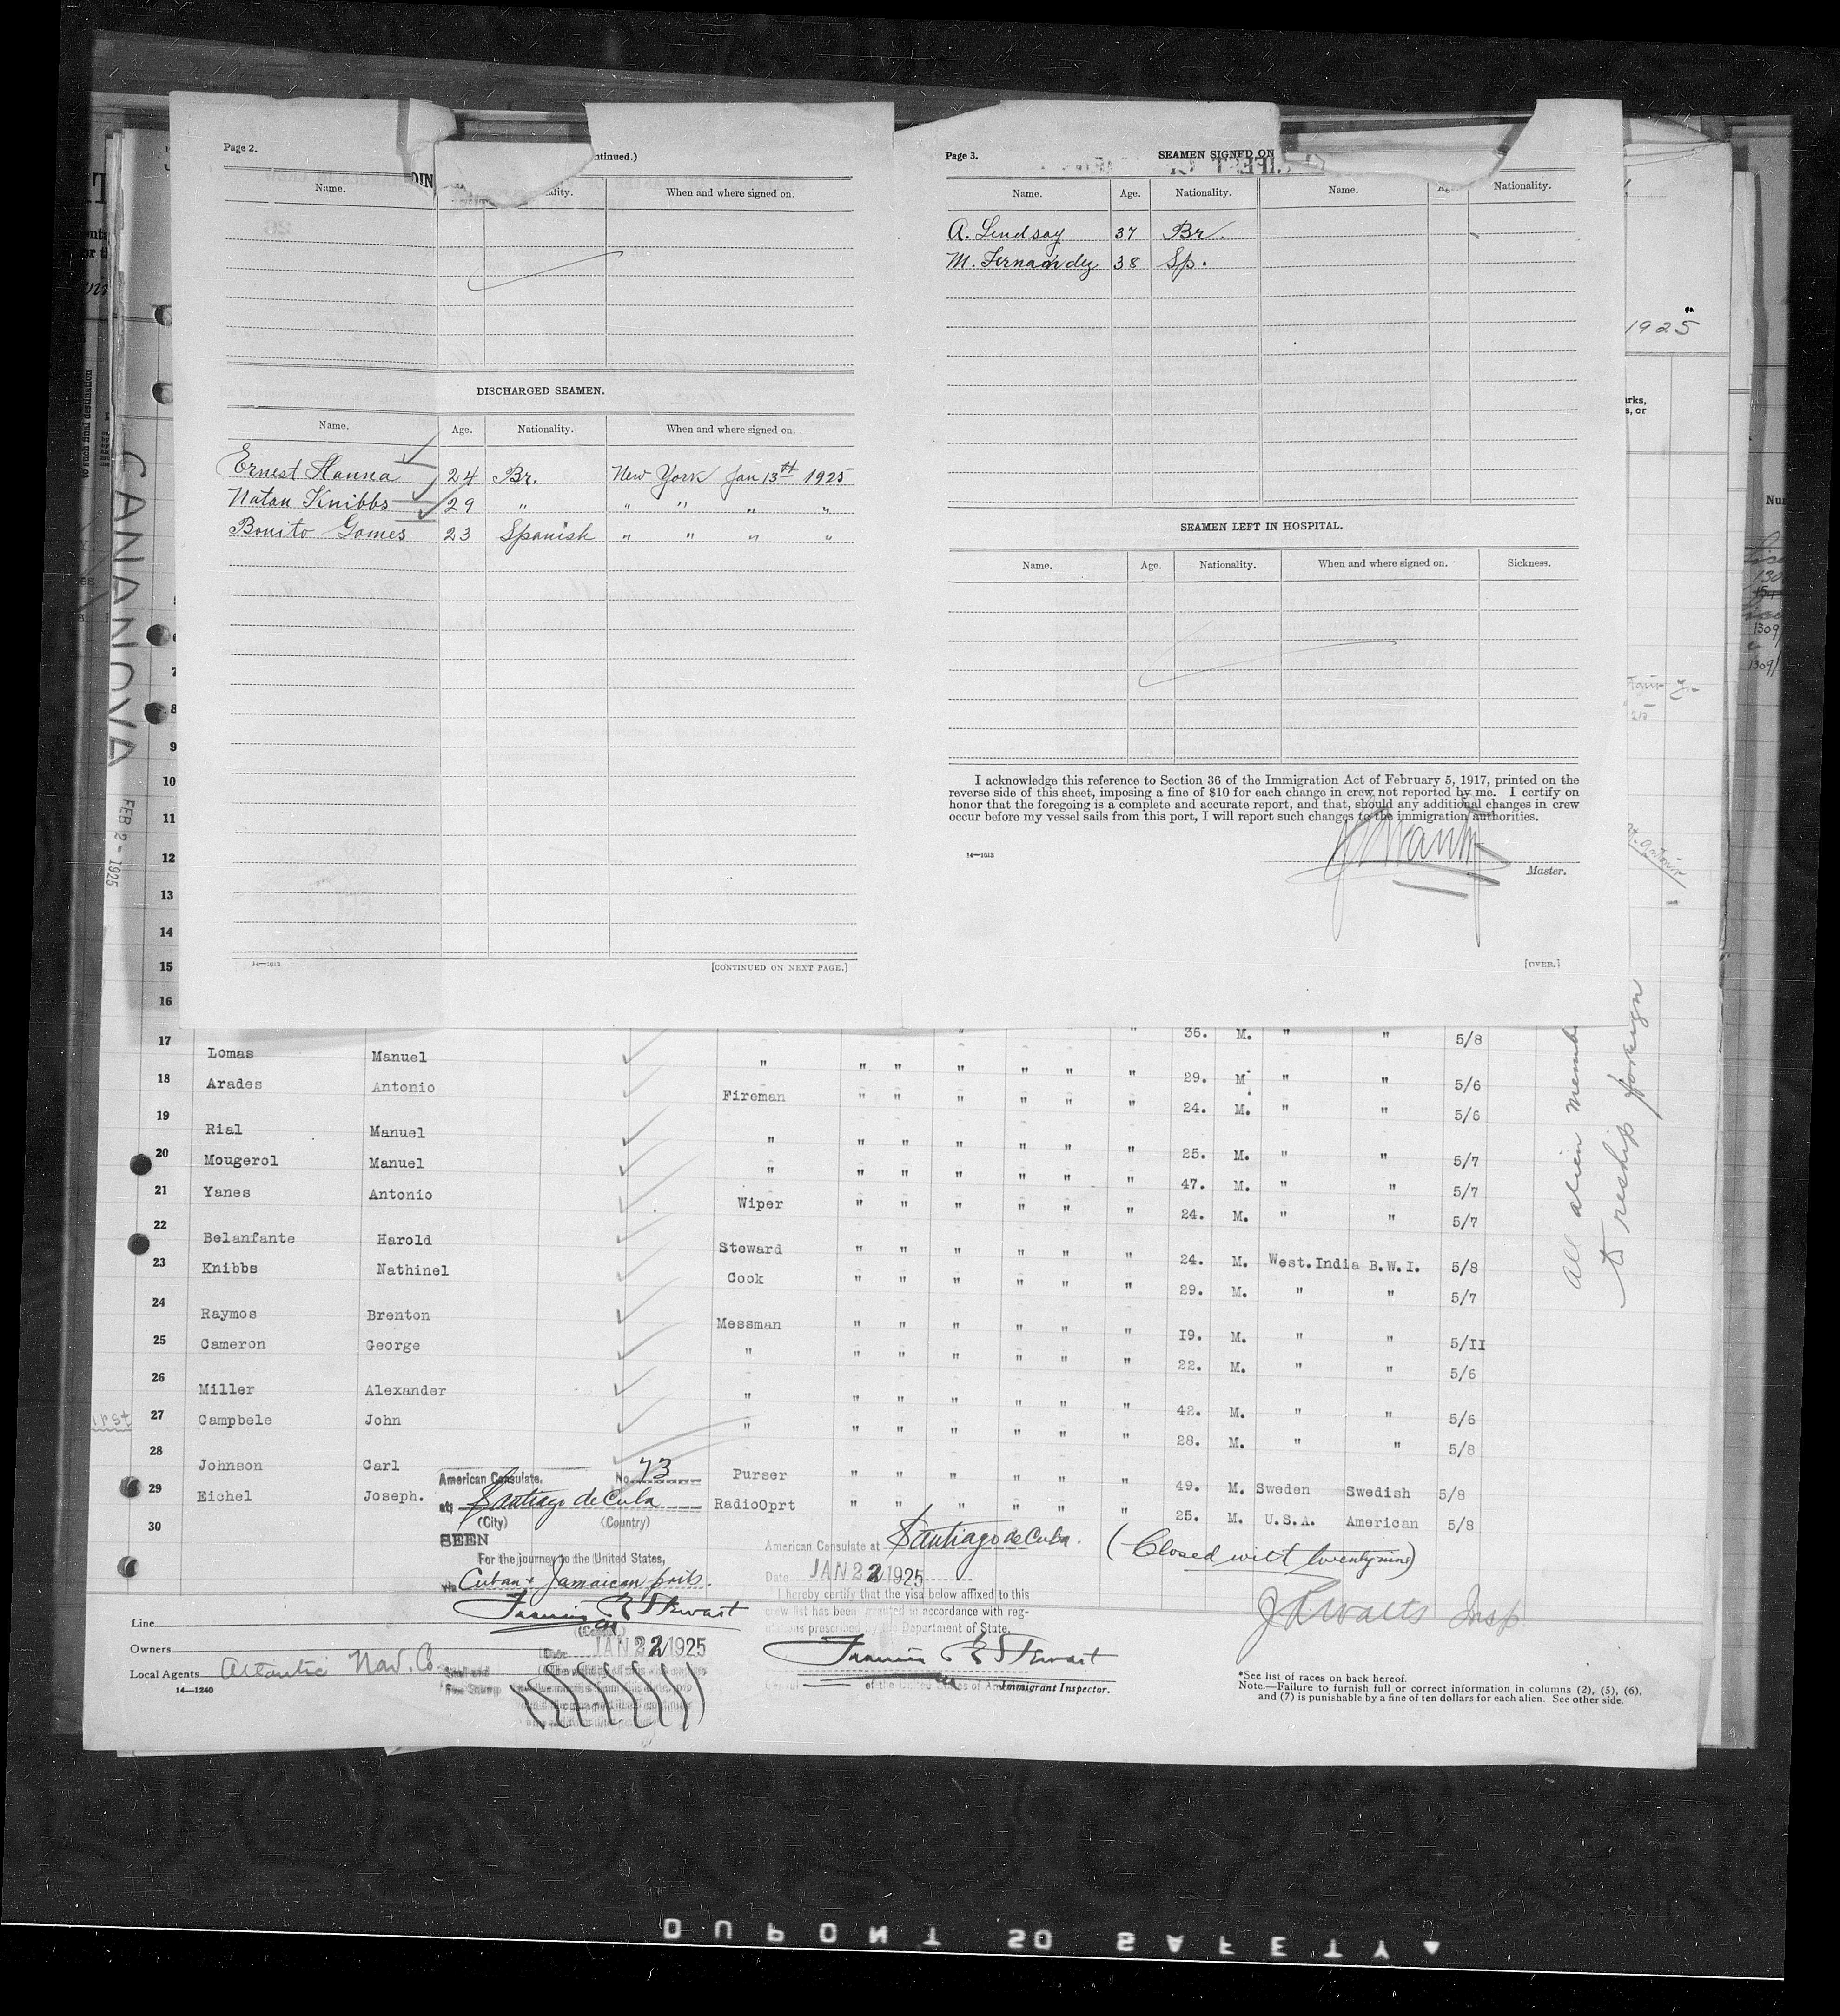 Page 2.
ntinued.)
Name.
ality.
When and where signed on.
DISCHARGED SEAMEN.
Name. Age. Nationality. When and where signed on.
Ernest Hanna 24 Br. New York Jan 13th 1925
Natan Knibbs 29 " " " " "
Bonito Gomes 23 Spanish " " " "
14—1613
[CONTINUED ON NEXT PAGE.]
Page 3.
SEAMEN SIGNED ON
Name. Age. Nationality. Name. Ag Nationality.
A. Lindsay 37 Br.
M. Fernandez 38 Sp.
SEAMEN LEFT IN HOSPITAL.
Name. Age. Nationality. When and where signed on. Sickness.
I acknowledge this reference to Section 36 of the Immigration Act of February 5, 1917, printed on the
reverse side of this sheet, imposing a fine of $10 for each change in crew not reported by me. I certify on
honor that the foregoing is a complete and accurate report, and that, should any additional changes in crew
occur before my vessel sails from this port, I will report such changes to the immigration authorities.
14—1613
Master.
[OVER.]
1925
CANANOVA
FEB 2 - 1925
to such final destination
7
8
9
10
11
12
13
14
15
16
17 " " 36. M. " " 5/8
Lomas Manuel " " " " " " " 29. M. " " 5/6
18
Arades Antonio Fireman " " " " " " 24. M. " " 5/6
19
Rial Manuel " " " " " " " 25. M. " " 5/7
20
Mougerol Manuel " " " " " " " 47. M. " " 5/7
21
Yanes Antonio Wiper " " " " " " 24. M. " " 5/7
22
Belanfante Harold Steward " " " " " " 24. M. West.India B.W.I. 5/8
23
Knibbs Nathinel Cook " " " " " " 29. M. " " 5/7
24
Raymos Brenton Messman " " " " " " 19. M. " " 5/11
25
Cameron George " " " " " " " 22. M. " " 5/6
26
Miller Alexander " " " " " " " 42. M. " " 5/6
27
Campbele John " " " " " " " 28. M. " " 5/8
28
Johnson Carl Purser " " " " " " 49. M. Sweden Swedish 5/8
29
Eichel Joseph. RadioOprt " " " " " " 25. M. U.S.A. American 5/8
30
All alien memb
to reship foreign
American Consulate. No. 73
at Santiago de Cuba
(City) (Country)
SEEN
For the journey to the United States,
via Cuban & Jamaican ports.
Francis R Stewart
Date JAN 22 1925
American Consulate at Santiago de Cuba.
Date JAN 22 1925
I hereby certify that the visa below affixed to this
crew list has been granted in accordance with reg-
ulations prescribed by the Department of State.
Francis R Stewart
of the United States of Am
Immigrant Inspector.
(Closed with twenty nine)
J R Waits Insp.
Line
Owners
Local Agents Atlantic Nav. Co.
14—1240
*See list of races on back hereof.
Note.—Failure to furnish full or correct information in columns (2), (5), (6),
and (7) is punishable by a fine of ten dollars for each alien. See other side.
DUPONT SO SAFETY